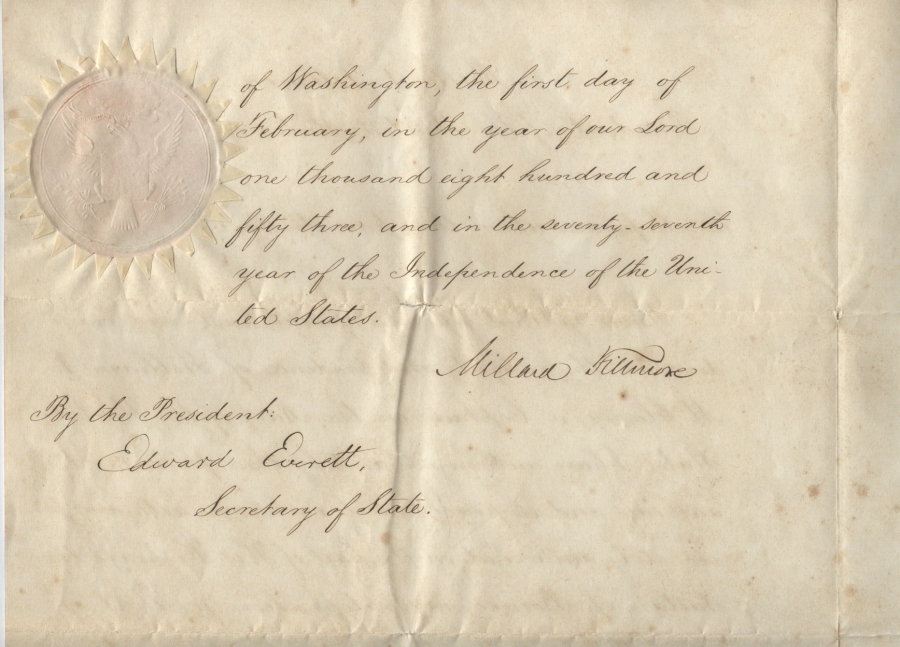 of Washington, the first day of
February, in the year of our Lord
one thousand eight hundred and
fifty three, and in the seventy-seventh
year of the Independence of the Uni-
ted States.
Millard Fillmore
By the President:
Edward Everett,
Secretary of State.